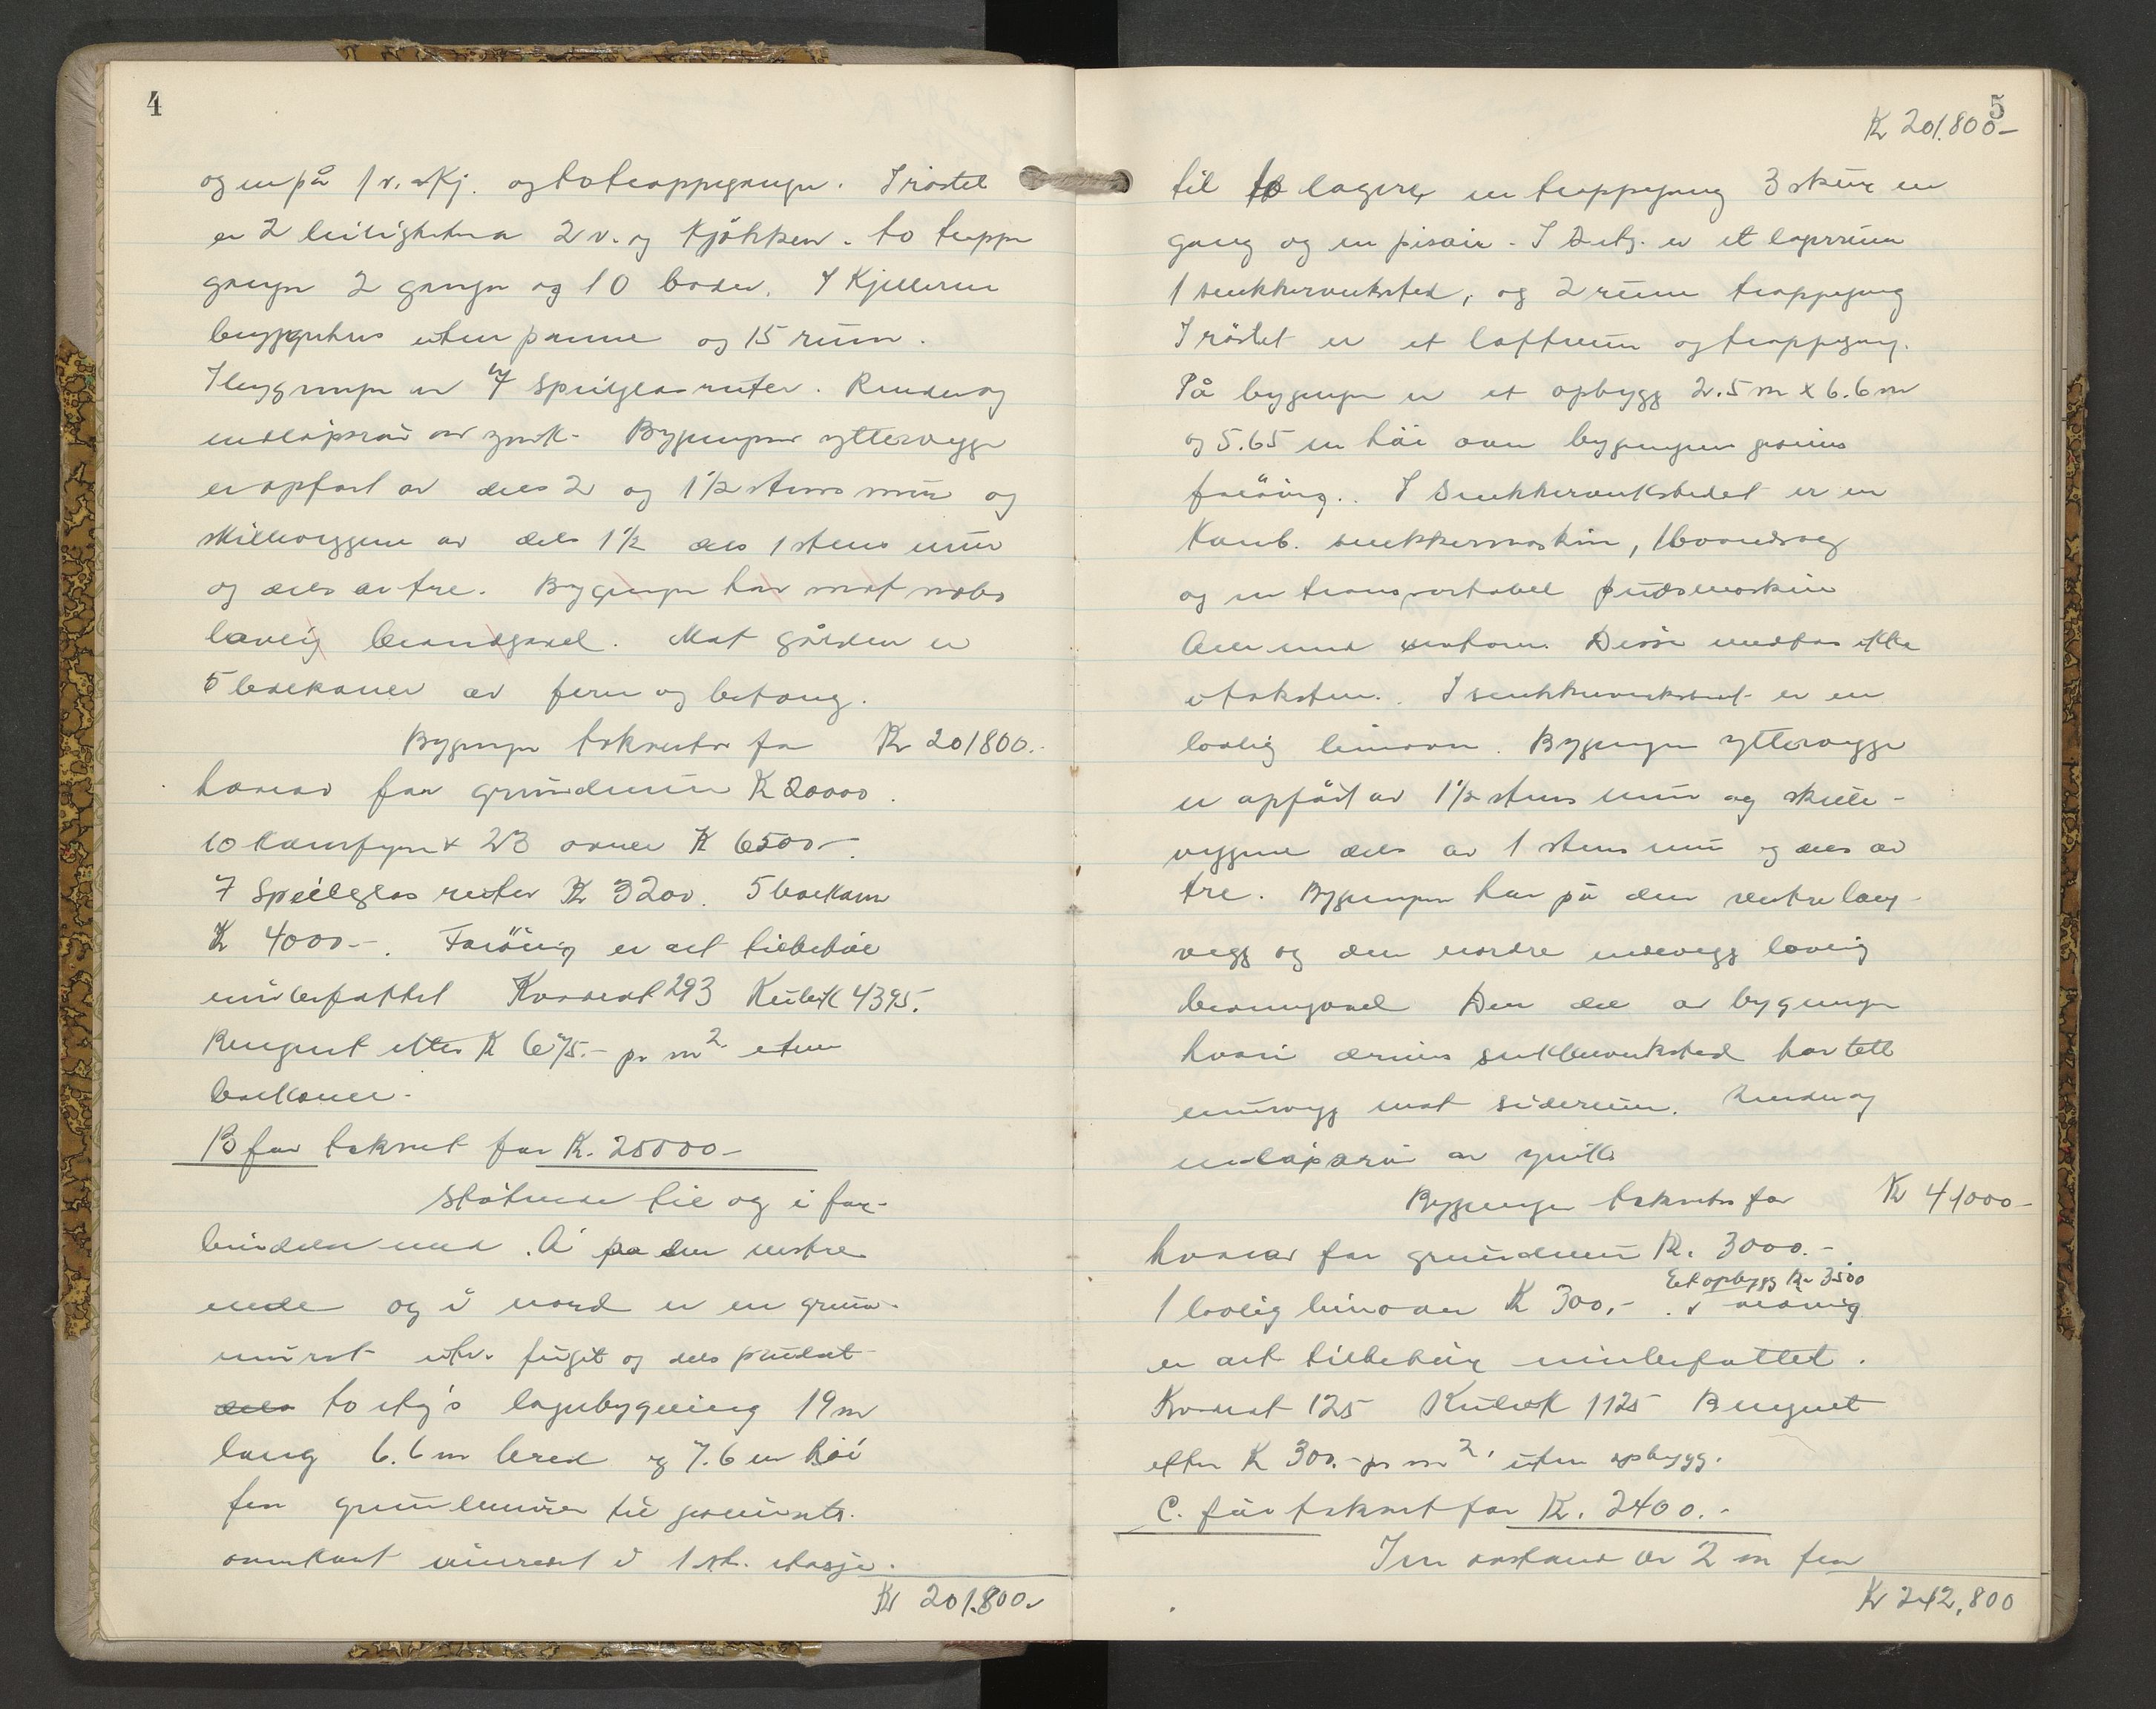 4
og en på 1 v. & Kj. og to trappeganger. I røstet
er 2 leiligheter a 2 v. og Kjökken. to trappe
ganger 2 ganger og 10 boder. I Kjelleren
bryggerhus uten panne og 15 rum.
I bygningen er 7 speilglassruter. Render og
nedløpsrør av zink. Bygningens yttervegger
er opført av dels 2 og 1½ stens mur og
skilleveggene av dels 1½ dels 1 stens mur
og dels av tre. Bygningen har mot nabo
lovlig brandgavl. Mot gården er
5 balkoner av jern og betong.
Bygningen takseres for Kr 201800.-
hvorav for grundmur Kr 20000.
10 komfyrer & 23 ovner Kr 6500-.
7 Speilglas ruter Kr 3200. 5 balkon
Kr 4000-. Forøvrig er alt tilbehør
innbefattet Kvadrat 293 Kubik 4395.
Beregnet etter Kr 675.- pr m² uten
balkoner.
B før taksert for Kr. 25000-
Støtende til og i for-
bindelse med A på den vestre
ende og i nord er en grund-
muret utv. fuget og dels pudset
dels to etg's lagerbygning 19 m
lang 6.6 m bred og 7.6 m høi
fra grundmuren til gesimsen.
innredet i 1st. etasje.
Kr 201.800.-
5
Kr 201.800-
til to lagere, en trappegang 3 skur en
gang og en pisoir. I 2 etg. er et lagerrum
1 snekkerverksted, og 2 rum trappegang
I röstet er et loftrum og trappegang.
På bygningen er et opbygg 2.5 m x 6.6 m
og 5.65 m høi over bygningens gesims
forøvrig. I Snekkerverkstedet er en
Komb. snekkermaskin, 1 bandsag
og en transportabel pudsmaskin
Alle med motorer. Disse medtas ikke
i taksten. I snekkerverkstedet er en
lovlig limovn. Bygningens yttervegger
er opført av 1½ stens mur og skille-
veggene dels av 1 stens mur og dels av
tre. Bygningen har på den vestre lang-
vegg og den nordre endevegg lovlig
branngavl Den del av bygningen
hvori drives snekkerverksted har tett
murvegg mot siderum. Render og
nedløpsrør av zink
Bygningen takseres for Kr 41000-
hvorav for grundmur Kr. 3000.-
Et opbygg Kr 3500
1 lovlig limovn Kr 300.-. forøvrig
er alt tilbehør innbefattet.
Kvadrat 125 Kubik 1125 Beregnet
etter Kr 300.- pr m². uten opbygg.
C. før taksert for Kr. 2400.-
I en avstand av 2 m fra
Kr 242,800